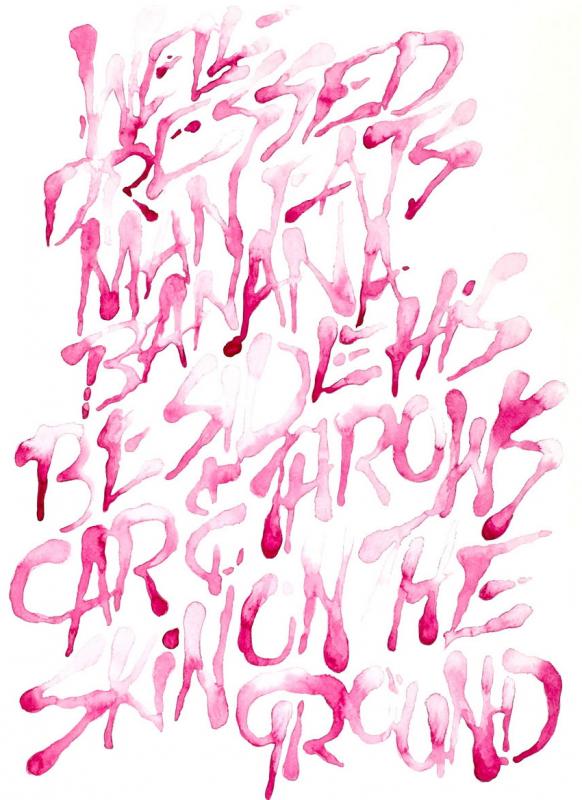 WELL
DRESSED
MAN EATS
BANANA
BESIDE HIS
CAR & THROWS
SKIN ON THE
GROUND